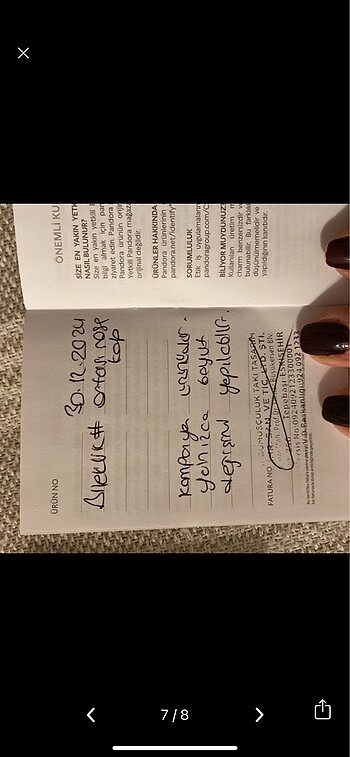 ÖNEMLİ KU
SİZE EN YAKIN YETK
NASIL BULUNUR?
Size en yakın yetkili P
bilgi almak için pan
ziyaret edin. Pandora
Pandora ürünün oriji
Yetkili Pandora mağaza
orijinal değildir.
ÜRÜNLER HAKKINDA
Pandora ürünlerinin
pandora.net/identify
SORUMLULUK
Etik iş uygulamaların
pandoragroup.com/CS
BİLİYOR MUYDUNUZ?
Kullanılan üretim m
charm benzersizdir v
bulunabilir. Bu farklılıkl
düşünülmemelidir ve
yapıldığının kanıtıdır.
ÜRÜN NO
30.12.2024
top
Kampanya ürünüdür.
yalnızca boyut
değişimi yapılabilir.
FATURA NO
GÜMÜŞÇÜLÜK TAKI TASARIM
SAN. VE TİC. LTD. ŞTİ.
Tepebaşı ESKİŞEHİR
7/8